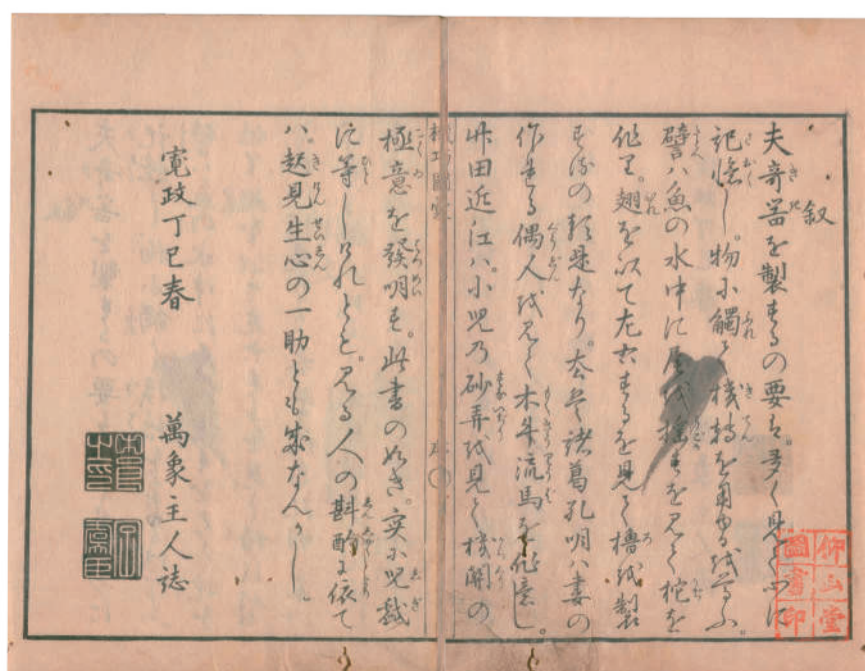 叙
夫奇器を製するの要は。多く見て心に
記憶し。物に觸て機転を用ゆるを尊ふ。
譬ハ魚の水中に尾を揺すを見て柁を
作り。翅を以て左右するを見て櫓を製
するの類是なり。諸葛孔明ハ妻の
作れる偶人を見て木牛流馬を作意し。
竹田近江ハ。小児乃砂弄を見て機関の
極意を發明す。此書の如き。実に児戯
に等しけれとも。見る人の斟酌に依て
ハ。起見生心の一助とも成なんかし。
寛政丁巳春
萬象主人誌